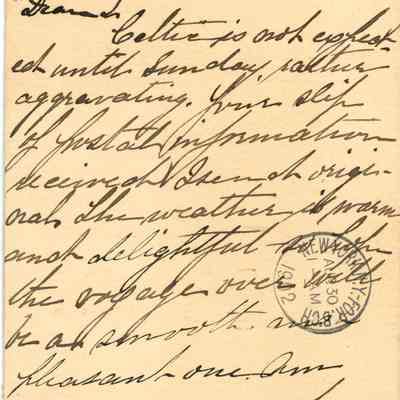 Dear S
Celtic is not expect-
ed until Sunday, rather
aggravating. Your slip
of postal information
received. I send origi-
nal. The weather is warm
and delightful so hope
the voyage over will
be a smooth and
pleasant one. Am
NEW YORK, N.Y.-FOR. B'CH
APR 30
AM
1912